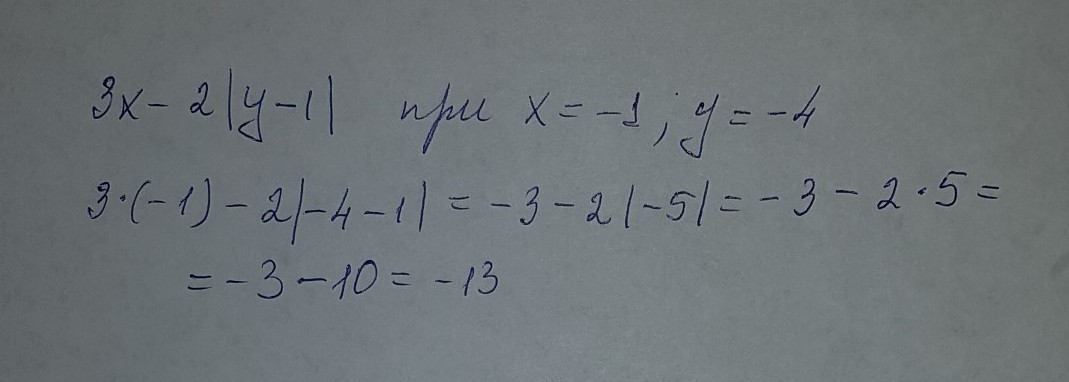 3x - 2|y-1| при x = -1; y = -4
3·(-1) - 2|-4-1| = -3-2|-5| = -3 - 2·5 =
= -3-10 = -13